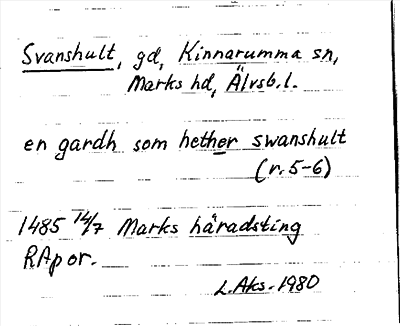 Svanshult, gd, Kinnarumma sn,
Marks hd, Älvsb.l.
en gardh som hether swanshult
(r. 5-6)
1485 14/7 Marks häradsting
RAp or.
L.Aks. 1980